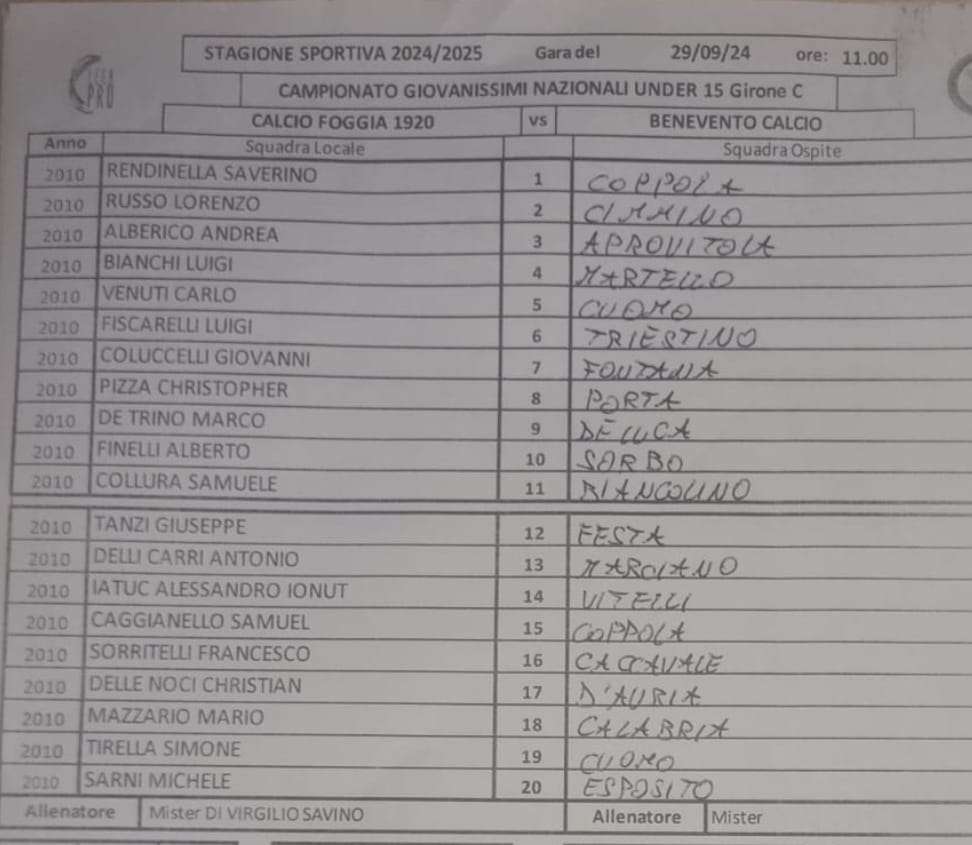 STAGIONE SPORTIVA 2024/2025 Gara del 29/09/24 ore: 11.00
CAMPIONATO GIOVANISSIMI NAZIONALI UNDER 15 Girone C
CALCIO FOGGIA 1920 vs BENEVENTO CALCIO
Anno Squadra Locale Squadra Ospite
2010 RENDINELLA SAVERINO 1 COPPOLA
2010 RUSSO LORENZO 2 CIMMINO
2010 ALBERICO ANDREA 3 APROVITOLA
2010 BIANCHI LUIGI 4 MARTELLO
2010 VENUTI CARLO 5 CUOMO
2010 FISCARELLI LUIGI 6 TRIESTINO
2010 COLUCCELLI GIOVANNI 7 FONTANA
2010 PIZZA CHRISTOPHER 8 PORTA
2010 DE TRINO MARCO 9 DE LUCA
2010 FINELLI ALBERTO 10 SORBO
2010 COLLURA SAMUELE 11 BIANCOLINO
2010 TANZI GIUSEPPE 12 FESTA
2010 DELLI CARRI ANTONIO 13 MARCIANO
2010 IATUC ALESSANDRO IONUT 14 VITELLI
2010 CAGGIANELLO SAMUEL 15 COPPOLA
2010 SORRITELLI FRANCESCO 16 CACCAVALE
2010 DELLE NOCI CHRISTIAN 17 D'AURIA
2010 MAZZARIO MARIO 18 CALABRIA
2010 TIRELLA SIMONE 19 CUOMO
2010 SARNI MICHELE 20 ESPOSITO
Allenatore Mister DI VIRGILIO SAVINO Allenatore Mister